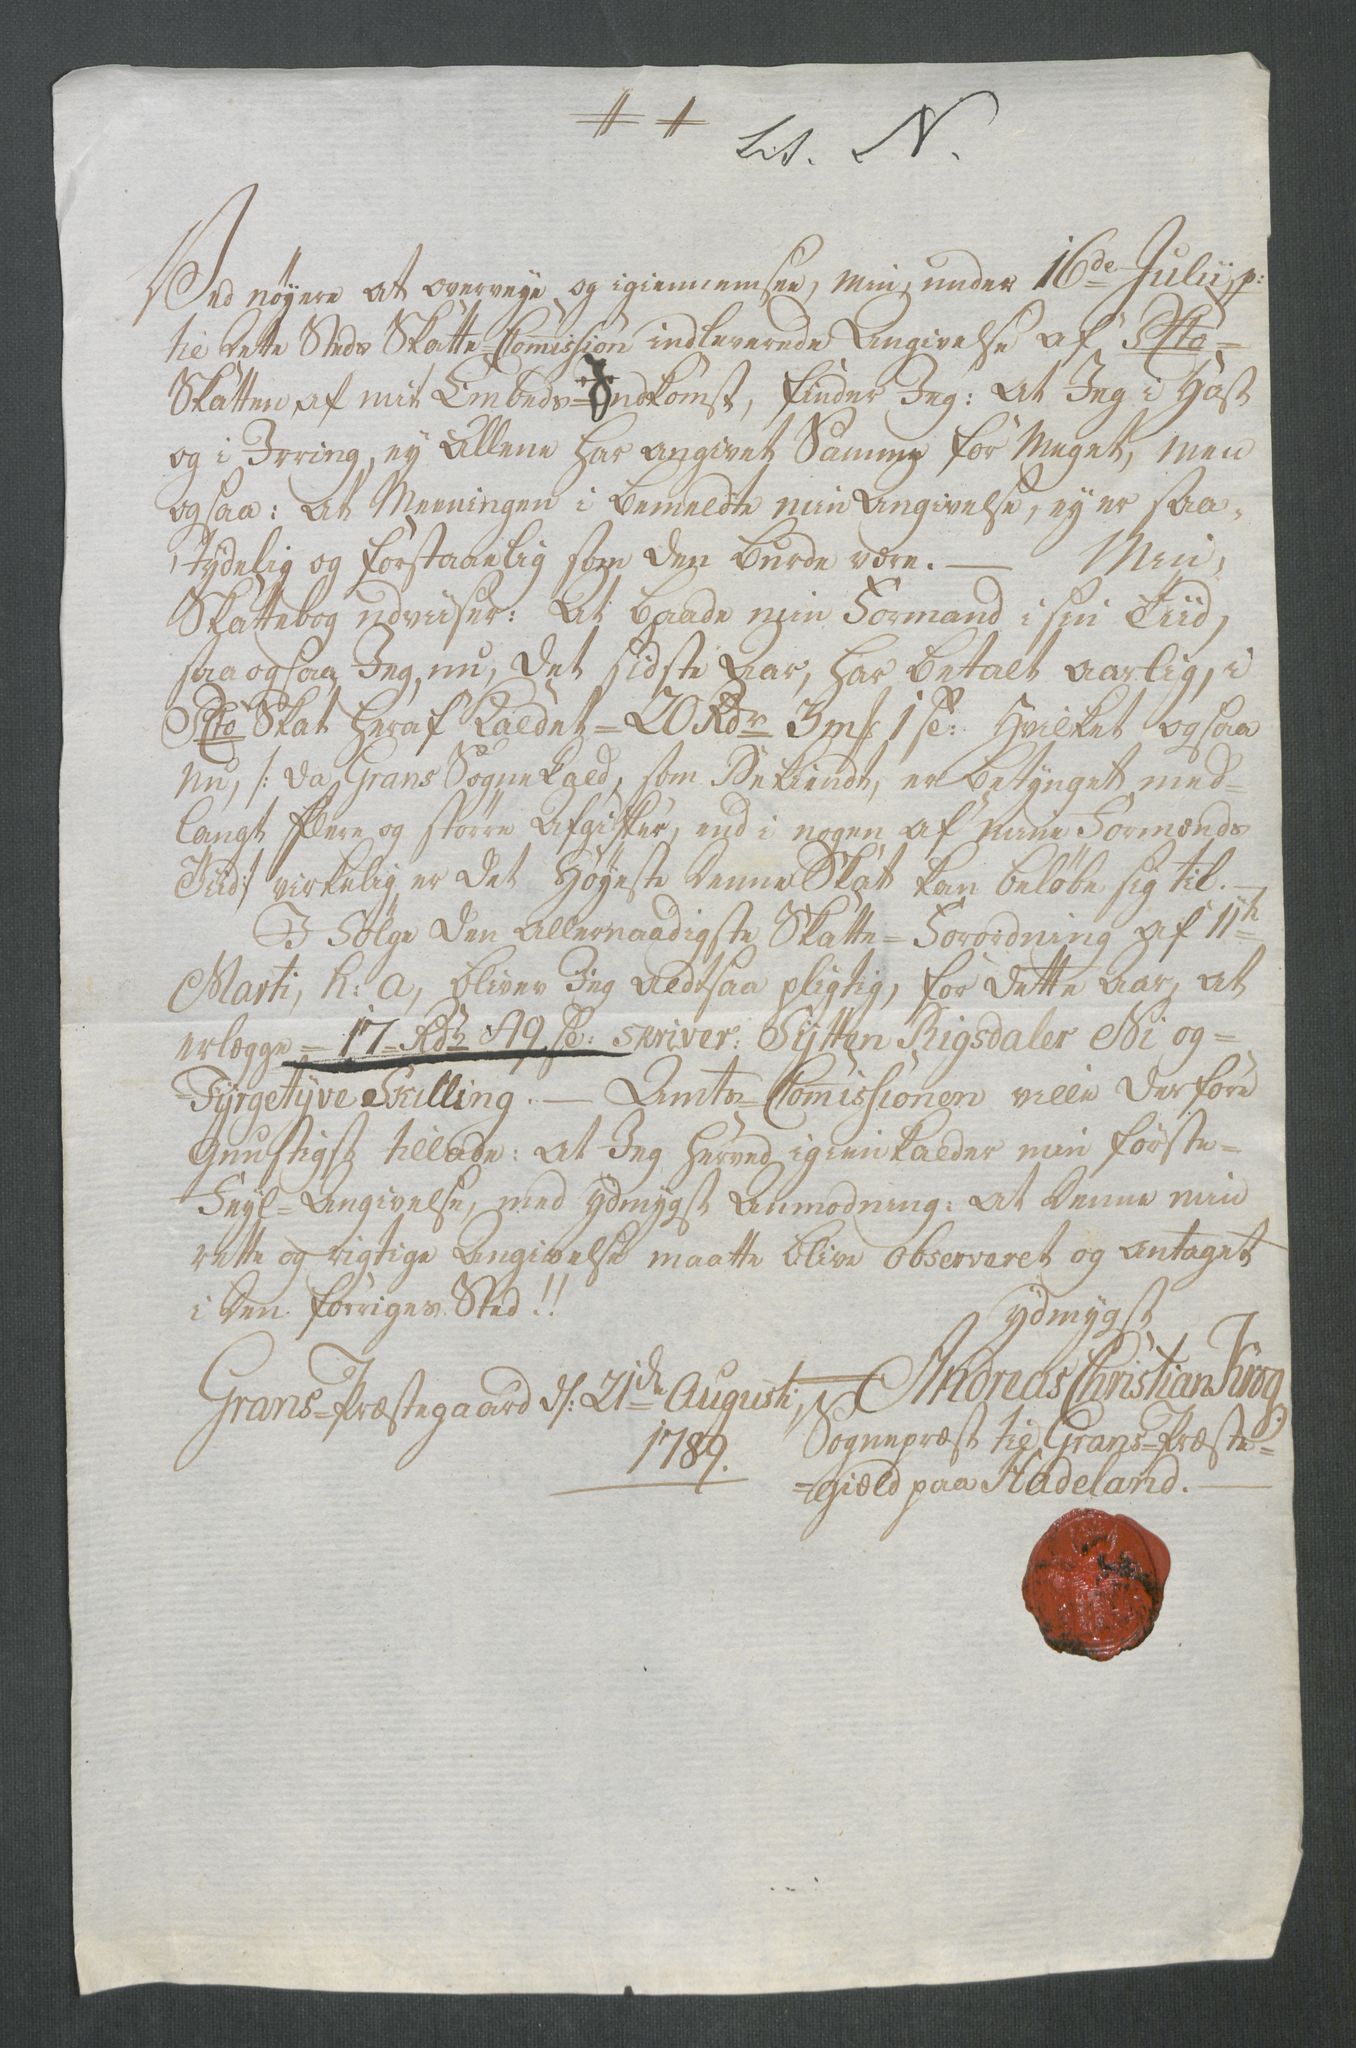 Lit. N.
Ved nöyere at overveye og igiennemsee, min, under 16de Julii p:
til dette Steds Skatte-Comission indleverede Angivelse af Pcto-
Skatten af mit Embeds-Indkomst, finder Jeg: at Jeg i Hast
og i Irring, ey Allene har angivet Samme for Meget, men
ogsaa: at Meeningen i bemeldte min Angivelse, ey er saa
tydelig og forstaaelig som den burde være. — Min
Skattebog udviiser: At baade min Formand i sin Tiid,
saa ogsaa Jeg, nu, det sidste Aar, har betalt aarlig, i
Pcto Skat heraf Kaldet = 20 Rdr 3 mk 1 sk: Hvilket ogsaa
nu, /: da Grans Sognekald, som Bekiendt, er betynget med-
langt flere og större Afgifter, end i nogen af mine Formænds
Tiid :/ virkelig er det Höyeste denne Skat kan belöbe sig til. —
I Fölge den allernaadigste Skatte-Forordning af 11te
Marti, h: a, bliver Jeg altsaa pligtig, for dette Aar, at
erlægge = 17 Rdr 49 sk: skriver: Sytten Rigsdaler Ni og=
=Fyrgetyve Skilling. — Amts-Comissionen ville derfore
gunstigst tillade: at Jeg herved igienkalder min förste=
Feyl-Angivelse, med ydmygst Anmodning: at denne min
rette og rigtige Angivelse maatte blive observeret og antaget
i den forriges Sted!!
ydmygst
Grans-Præstegaard d: 21de Augusti,
1789.
Andreas Christian Krog
Sognepræst til Grans-Præste=
=gield paa Hadeland. —